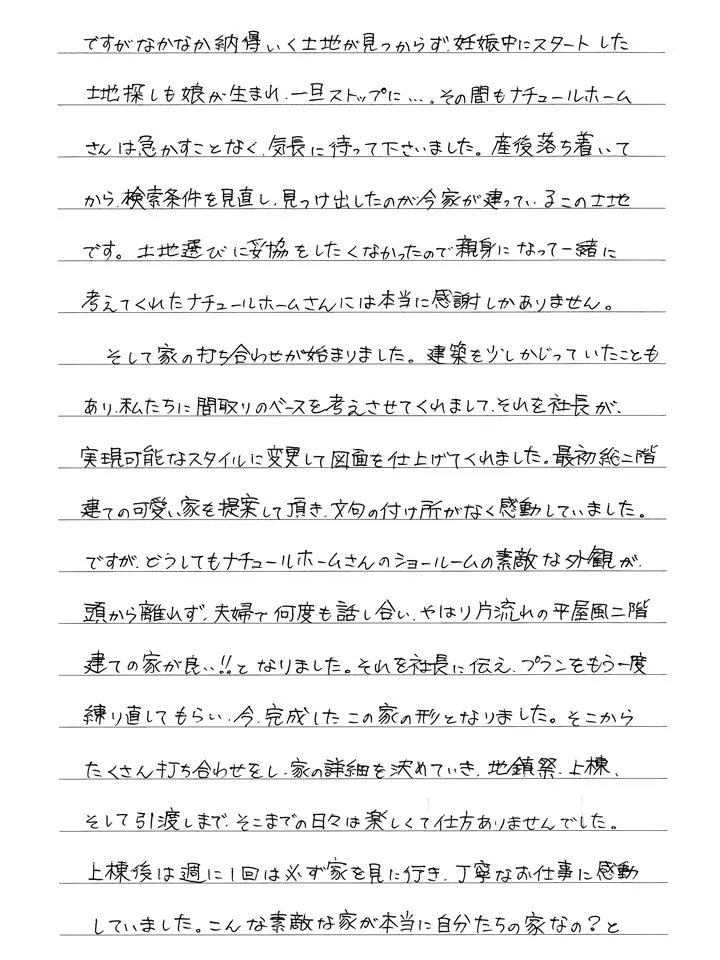 ですがなかなか納得いく土地が見つからず、妊娠中にスタートした
土地探しも娘が生まれ、一旦ストップに…。その間もナチュールホーム
さんは急かすことなく、気長に待って下さいました。産後落ち着いて
から、検索条件を見直し、見つけ出したのが今家が建っているこの土地
です。土地選びに妥協をしたくなかったので親身になって一緒に
考えてくれたナチュールホームさんには本当に感謝しかありません。
そして家の打ち合わせが始まりました。建築を少しかじっていたことも
あり、私たちに間取りのベースを考えさせてくれまして、それを社長が、
実現可能なスタイルに変更して図面を仕上げてくれました。最初総二階
建ての可愛い家を提案して頂き、文句の付け所がなく感動していました。
ですが、どうしてもナチュールホームさんのショールームの素敵な外観が、
頭から離れず、夫婦で何度も話し合い、やはり片流れの平屋風二階
建ての家が良い!!となりました。それを社長に伝え、プランをもう一度
練り直してもらい、今、完成したこの家の形となりました。そこから
たくさん打ち合わせをし、家の詳細を決めていき、地鎮祭、上棟、
そして引渡しまで、そこまでの日々は楽しくて仕方ありませんでした。
上棟後は週に1回は必ず家を見に行き、丁寧なお仕事に感動
していました。こんな素敵な家が本当に自分たちの家なの?と